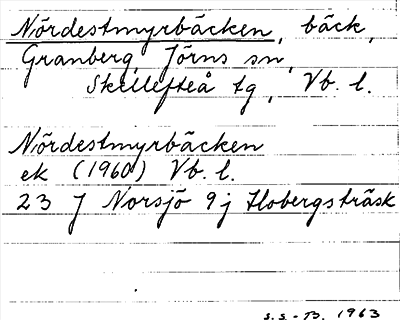 Nördestmyrbäcken, bäck,
Granberg, Jörns sn,
Skellefteå tg, Vb. l.
Nördestmyrbäcken
ek (1960) Vb. l.
23 J Norsjö 9 j Hobergsträsk
S.S.-B. 1963